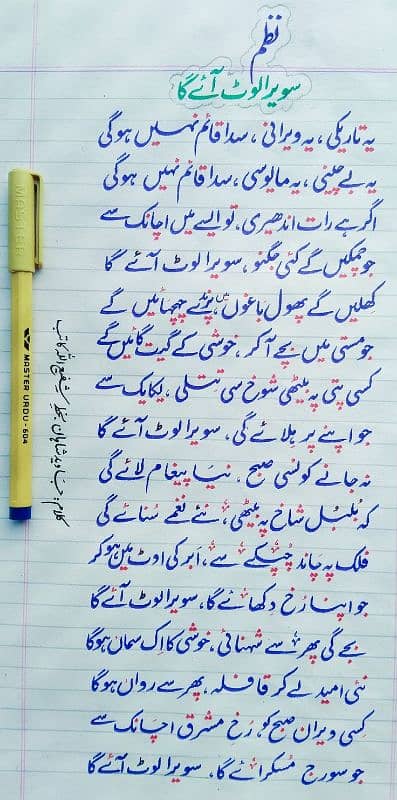 نظم
سویرا لوٹ آئے گا
یہ تاریکی، یہ ویرانی، سدا قائم نہیں ہوگی
یہ بے چینی، یہ مایوسی، سدا قائم نہیں ہوگی
اگر ہے رات اندھیری، تو ایسے میں اچانک سے
جو چمکیں گے کئی جگنو، سویرا لوٹ آئے گا
کھلیں گے پھول باغوں میں، پرندے چہچہائیں گے
جو مستی میں بچے آ کر، خوشی کے گیت گائیں گے
کسی پتی پہ بیٹھی شوخ سی تتلی، یکایک سے
جو اپنے پر ہلائے گی، سویرا لوٹ آئے گا
نہ جانے کونسی صبح، نیا پیغام لائے گی
کہ بُلبُل شاخ پہ بیٹھی، نئے نغمے سُنائے گی
فلک پہ چاند چُپکے سے، اَبر کی اوٹ میں ہو کر
جو اپنا رُخ دکھائے گا، سویرا لوٹ آئے گا
بجے گی پھر سے شہنائی، خوشی کا اِک سماں ہوگا
نئی امید لے کر قافلہ، پھر سے رواں ہوگا
کِسی ویران صبح کو، رُخِ مشرق اچانک سے
جو سورج مُسکرائے گا، سویرا لوٹ آئے گا
MASTER
MASTER URDU - 604
کلام: